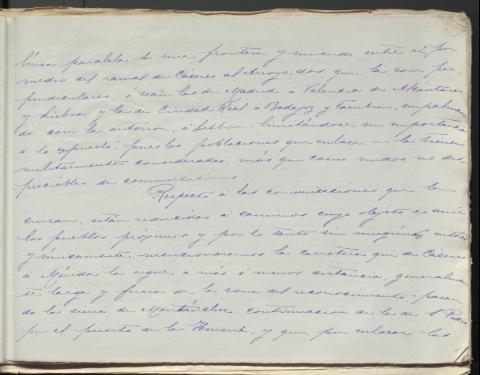 líneas paralelas la nueva frontera y uniendo entre sí por
medio del ramal de Cáceres al Arroyo, dos que la son per-
pendiculares, ó sean las de Madrid á Valencia de Alcántara
y Lisboa y la de Ciudad Real á Badajoz y también, empalman-
do con la anterior, á Lisboa, limitándose su importancia
á lo expuesto, pues las poblaciones que enlaza no la tienen
militarmente consideradas, más que como nudos no des-
preciables de comunicaciones.
Respecto á las comunicaciones que la
cruzan, están reducidas á caminos, cuyo objeto es unir
los pueblos próximos y por lo tanto sin ningún interés
y únicamente, mencionaremos la carretera que de Cáceres
á Mérida la sigue á más ó menos distancia, generalmen-
te larga y fuera de la zona del reconocimiento, pasan-
do la sierra de Montánchez, continuación de la de S. Pedro
por el puerto de la Herrería, y que por enlazar las